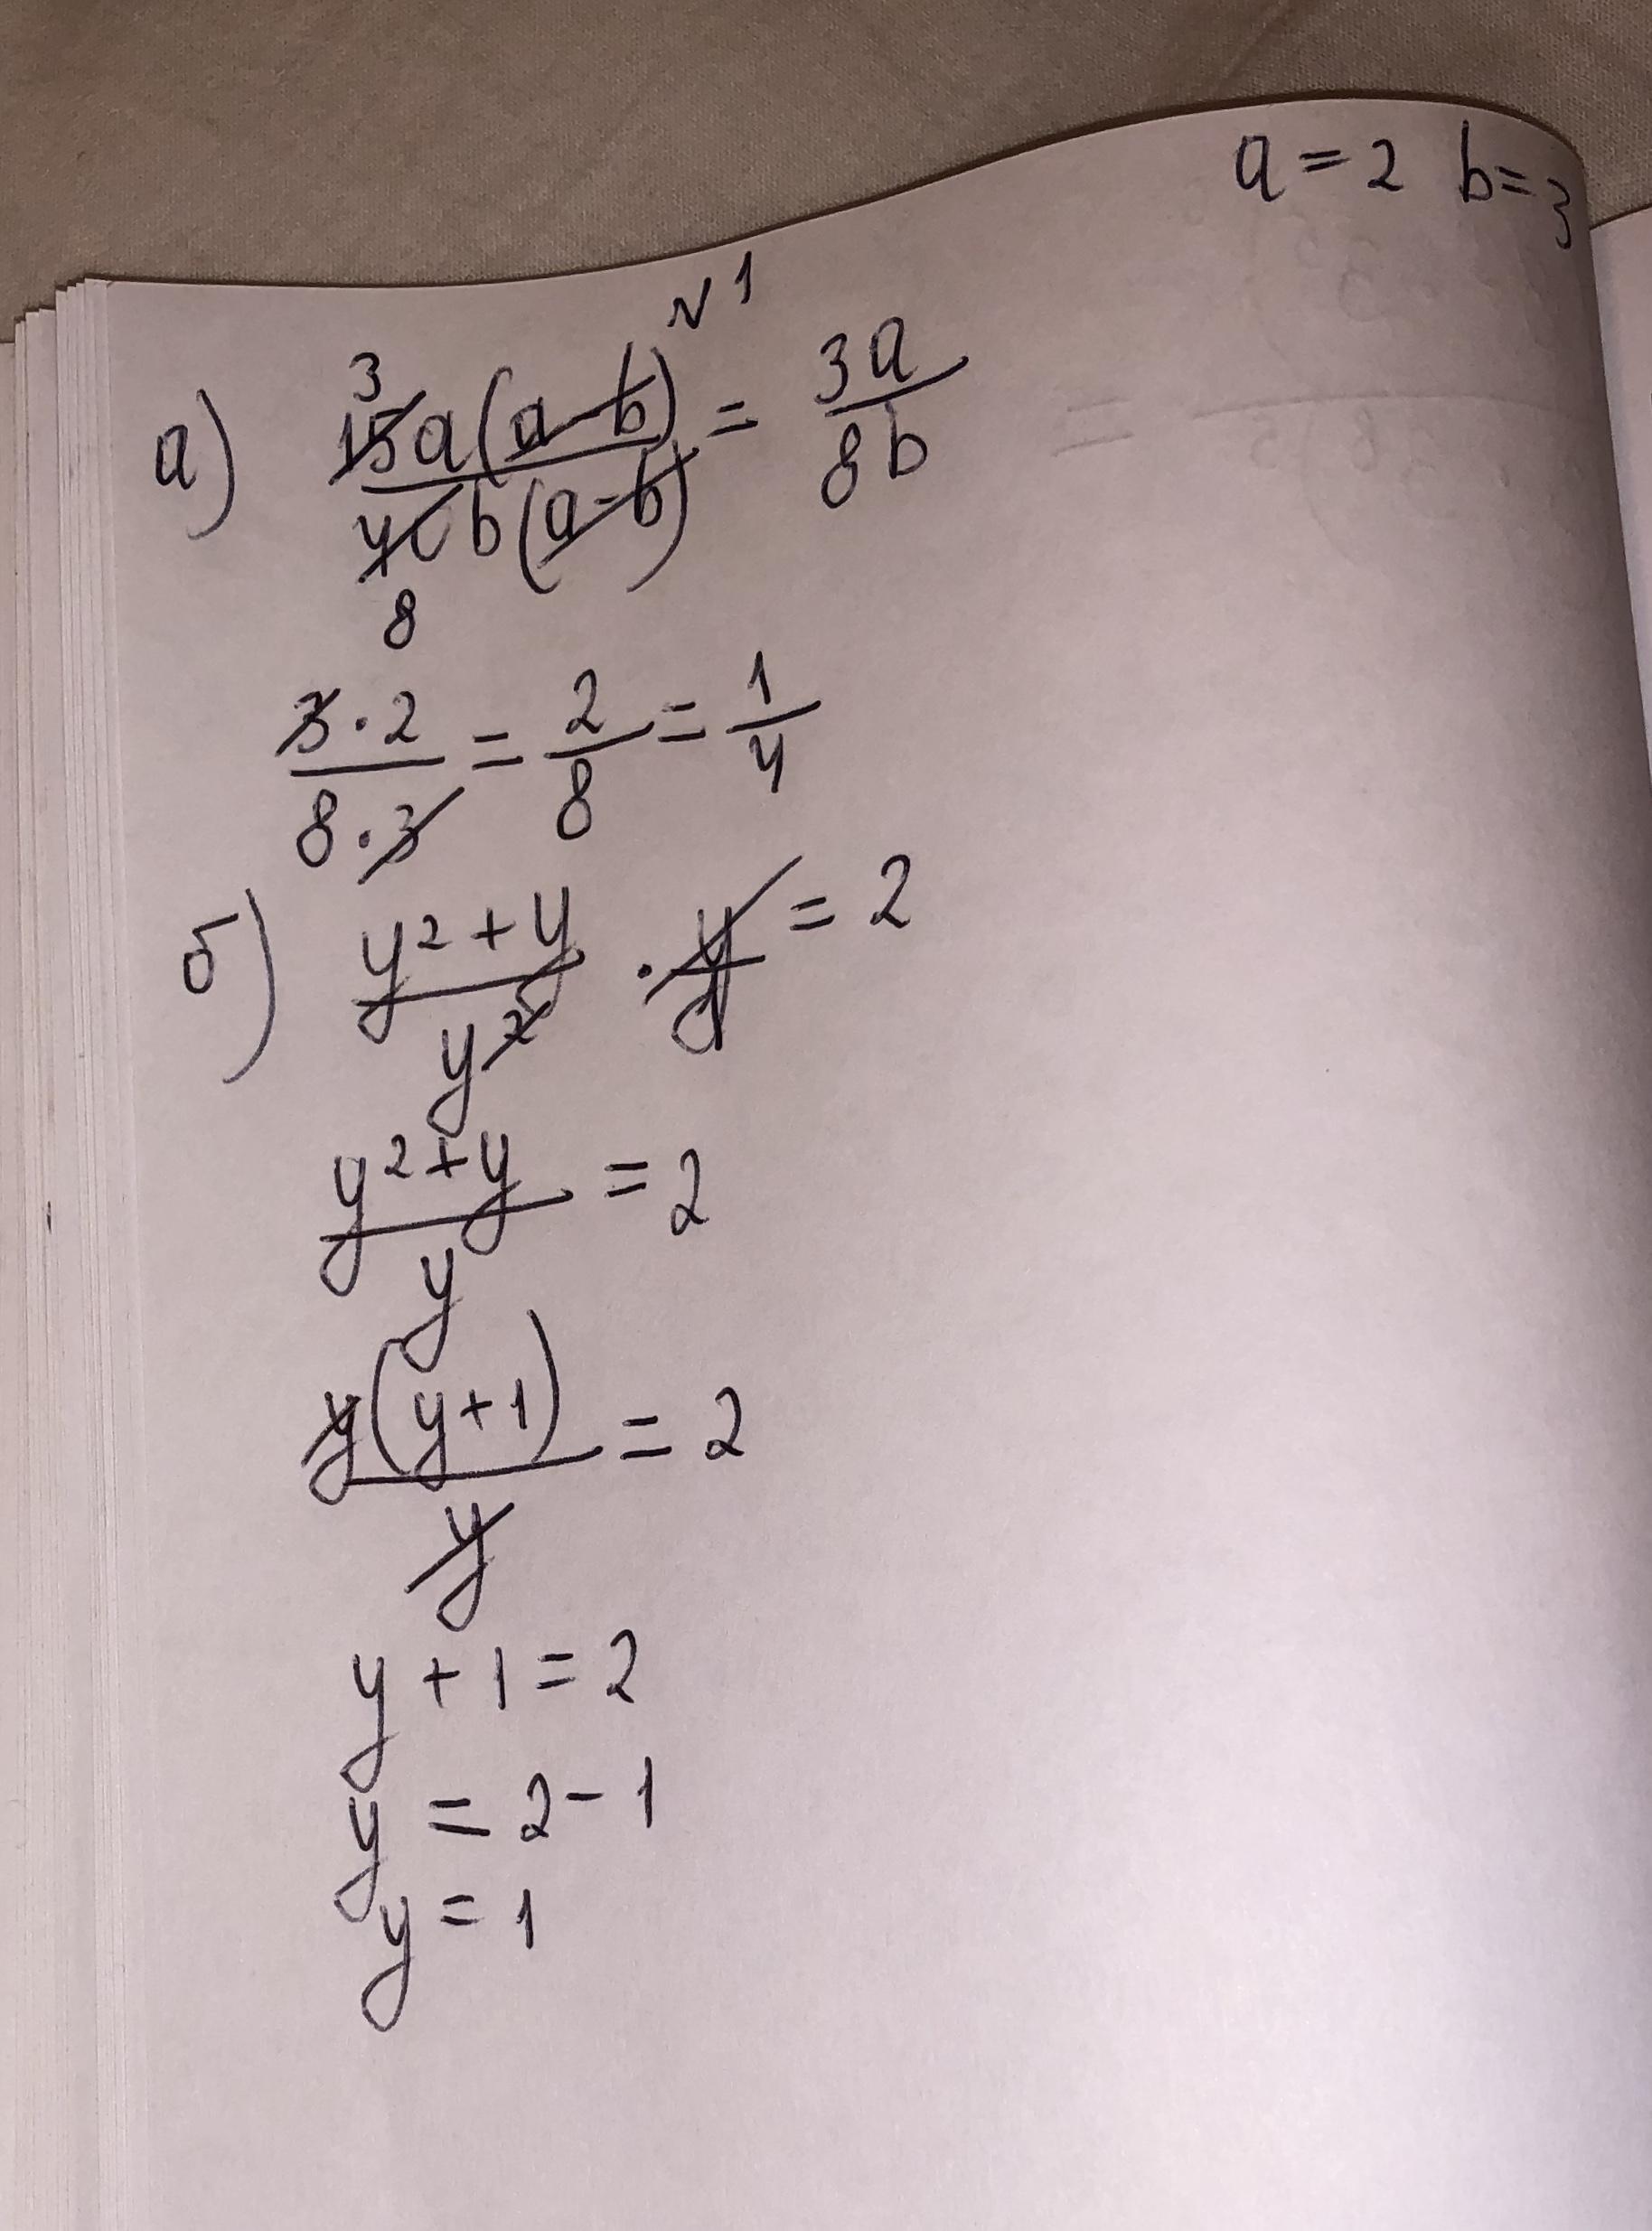 a = 2 b = 3
№ 1
а) 15a(a-b) / 40b(a-b) = 3a / 8b
3
8
3 · 2 / 8 · 3 = 2 / 8 = 1 / 4
б) y² + y / y² · y = 2
y² + y / y = 2
y(y+1) / y = 2
y + 1 = 2
y = 2 - 1
y = 1